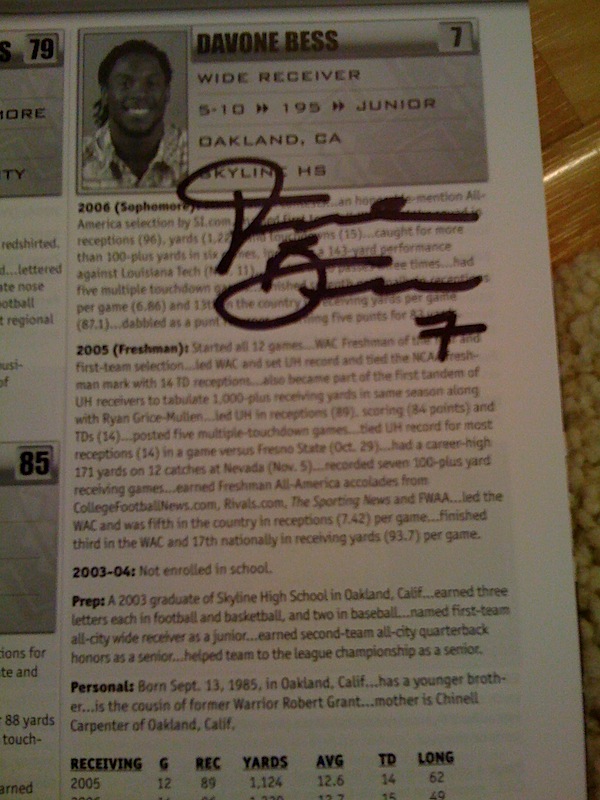 S 79
MORE
TY
redshirted.
d...lettered
ate nose
ootball
t regional
usi-
of
85
ions for
te and
88 yards
touch-
arned
DAVONE BESS 7
WIDE RECEIVER
5-10 » 195 » JUNIOR
OAKLAND, CA
SKYLINE HS
7
2006 (Sophomore): ...an honorable-mention All-
America selection by SI.com
receptions (96), yards and touchdowns (15)...caught for more
than 100-plus yards in six games, a 143-yard performance
against Louisiana Tech three times...had
five multiple touchdown receptions
per game (6.86) and 13th in the country receiving yards per game
(87.1)...dabbled as a punt five punts for
2005 (Freshman): Started all 12 games...WAC Freshman of the and
first-team selection...led WAC and set UH record and tied the NCAA fresh-
man mark with 14 TD receptions...also became part of the first tandem of
UH receivers to tabulate 1,000-plus receiving yards in same season along
with Ryan Grice-Mullen...led UH in receptions (89), scoring (84 points) and
TDs (14)...posted five multiple-touchdown games...tied UH record for most
receptions (14) in a game versus Fresno State (Oct. 29)...had a career-high
171 yards on 12 catches at Nevada (Nov. 5)...recorded seven 100-plus yard
receiving games...earned Freshman All-America accolades from
CollegeFootballNews.com, Rivals.com, The Sporting News and FWAA...led the
WAC and was fifth in the country in receptions (7.42) per game...finished
third in the WAC and 17th nationally in receiving yards (93.7) per game.
2003-04: Not enrolled in school.
Prep: A 2003 graduate of Skyline High School in Oakland, Calif...earned three
letters each in football and basketball, and two in baseball...named first-team
all-city wide receiver as a junior...earned second-team all-city quarterback
honors as a senior...helped team to the league championship as a senior.
Personal: Born Sept. 13, 1985, in Oakland, Calif...has a younger broth-
er...is the cousin of former Warrior Robert Grant...mother is Chinell
Carpenter of Oakland, Calif.
RECEIVING G REC YARDS AVG TD LONG
2005 12 89 1,124 12.6 14 62